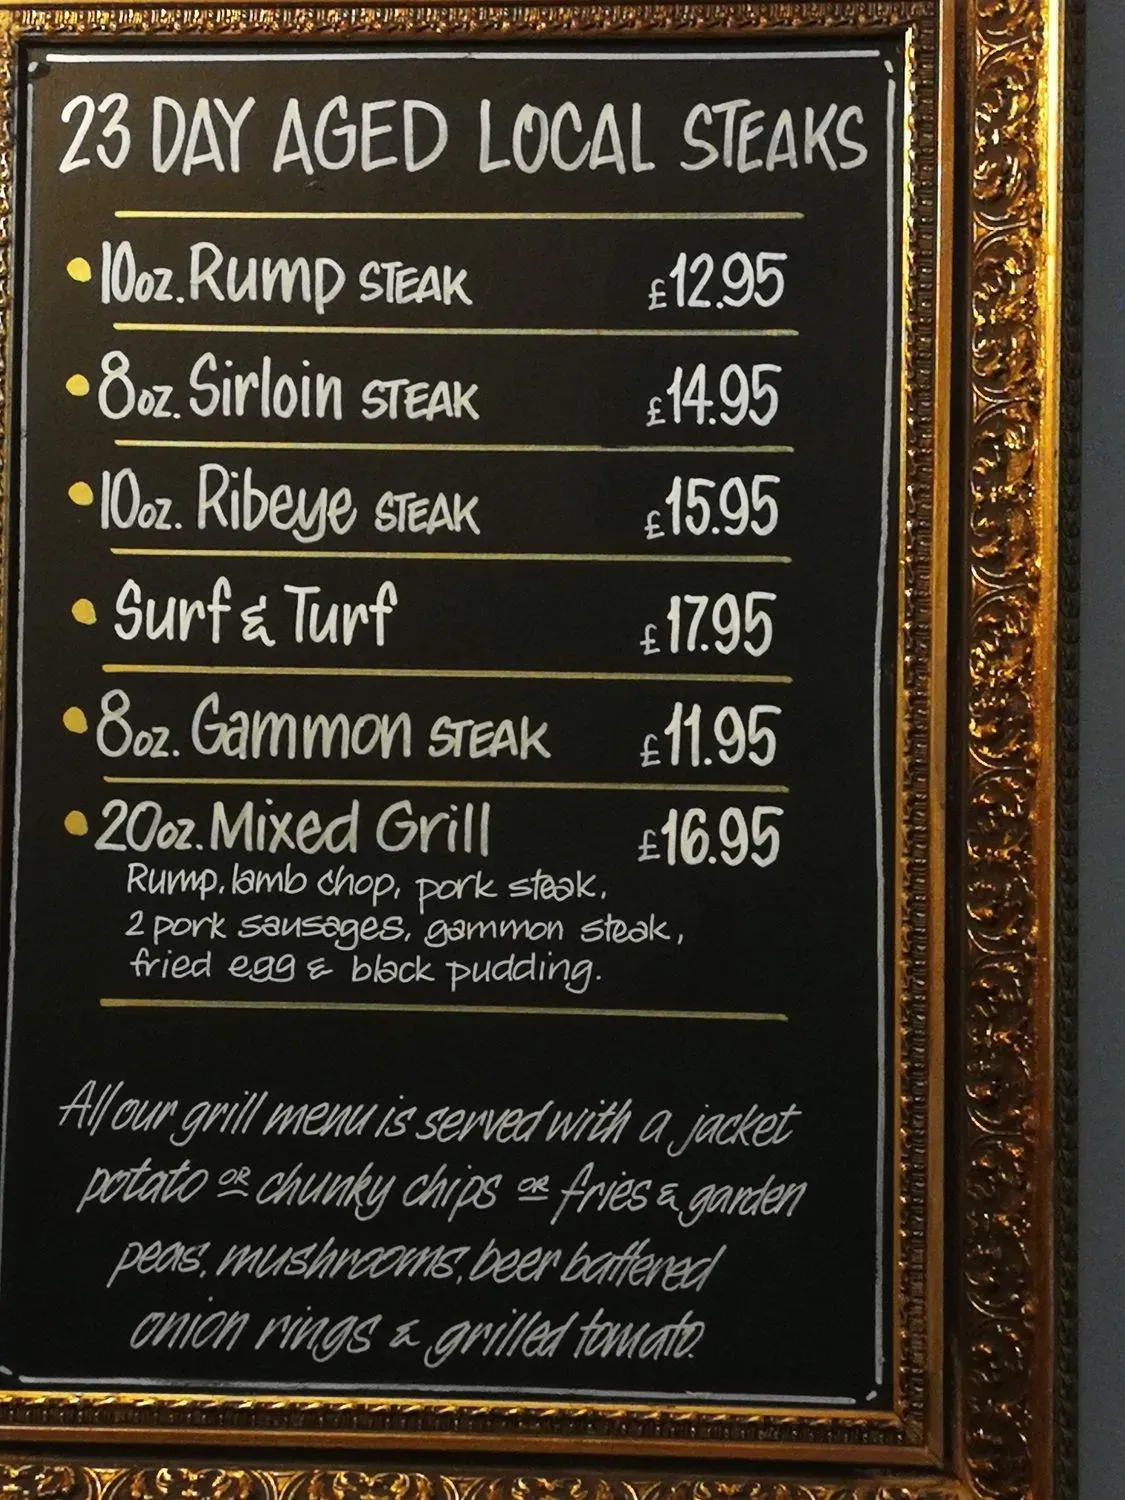 23 DAY AGED LOCAL STEAKS
10oz. Rump STEAK £12.95
8oz. Sirloin STEAK £14.95
10oz. Ribeye STEAK £15.95
Surf & Turf £17.95
8oz. Gammon STEAK £11.95
20oz. Mixed Grill £16.95
Rump, lamb chop, pork steak,
2 pork sausages, gammon steak,
fried egg & black pudding.
All our grill menu is served with a jacket
potato OR chunky chips OR fries & garden
peas, mushrooms, beer battered
onion rings & grilled tomato.